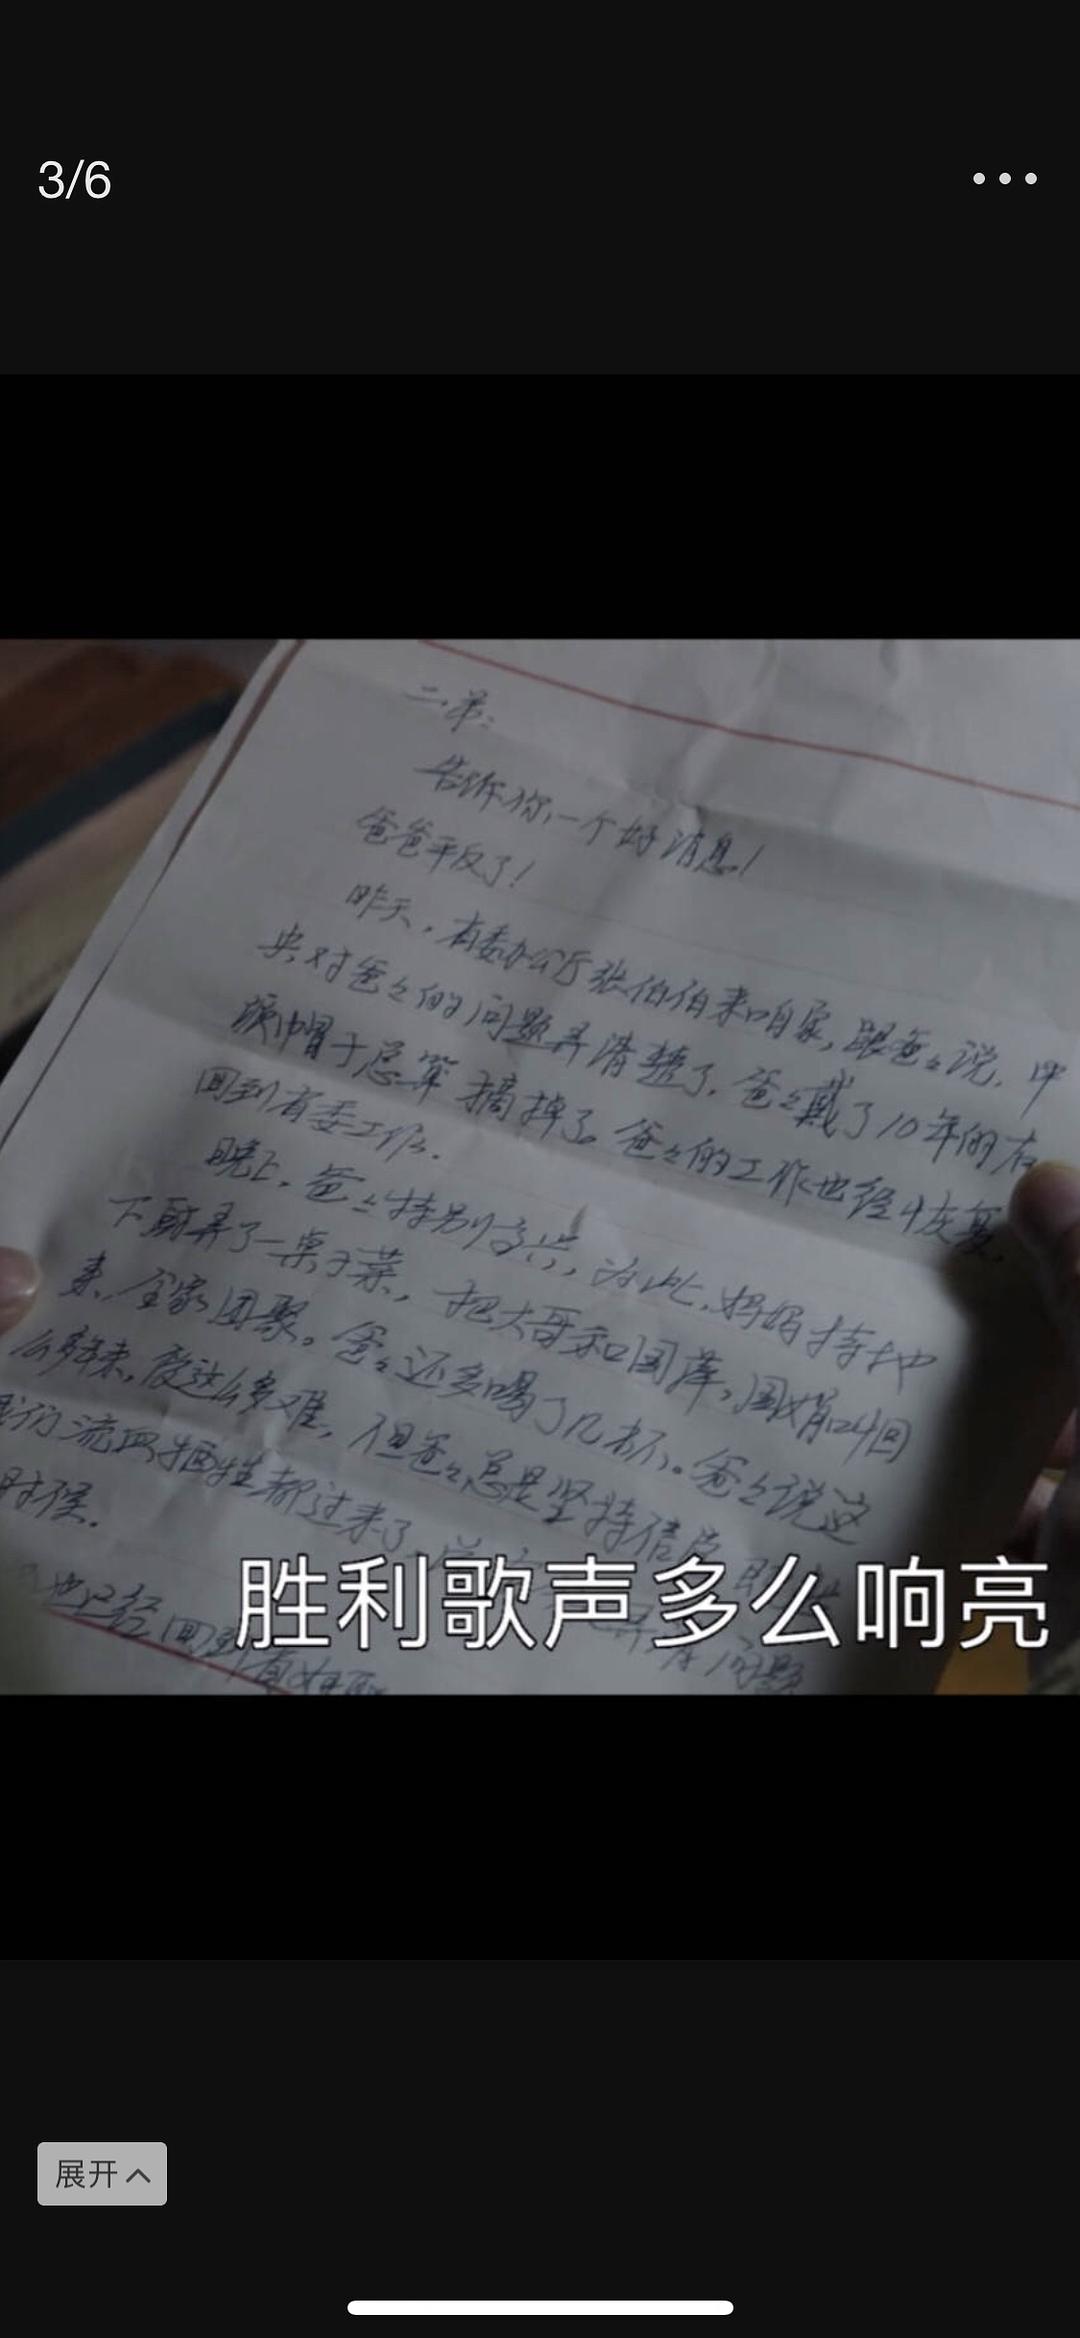 3/6
二弟：
告诉你，一个好消息！
爸爸平反了！
昨天，省委办公厅张伯伯来咱家，跟爸々说，中
央对爸々的问题弄清楚了，爸々戴了10年的右
派帽子总算摘掉了。爸々的工作也经恢复，
回到省委工作。
晚上，爸々特别高兴，为此，妈妈特地
下厨弄了一桌子菜，把大哥和国萍，国娟叫回
来，全家团聚。爸々还多喝了几杯。爸々说这
么多年来，受这么多难，但爸々总是坚持信
我们流血牺牲都过来了
时候。
也已经回到省
问题
胜利歌声多么响亮
展开